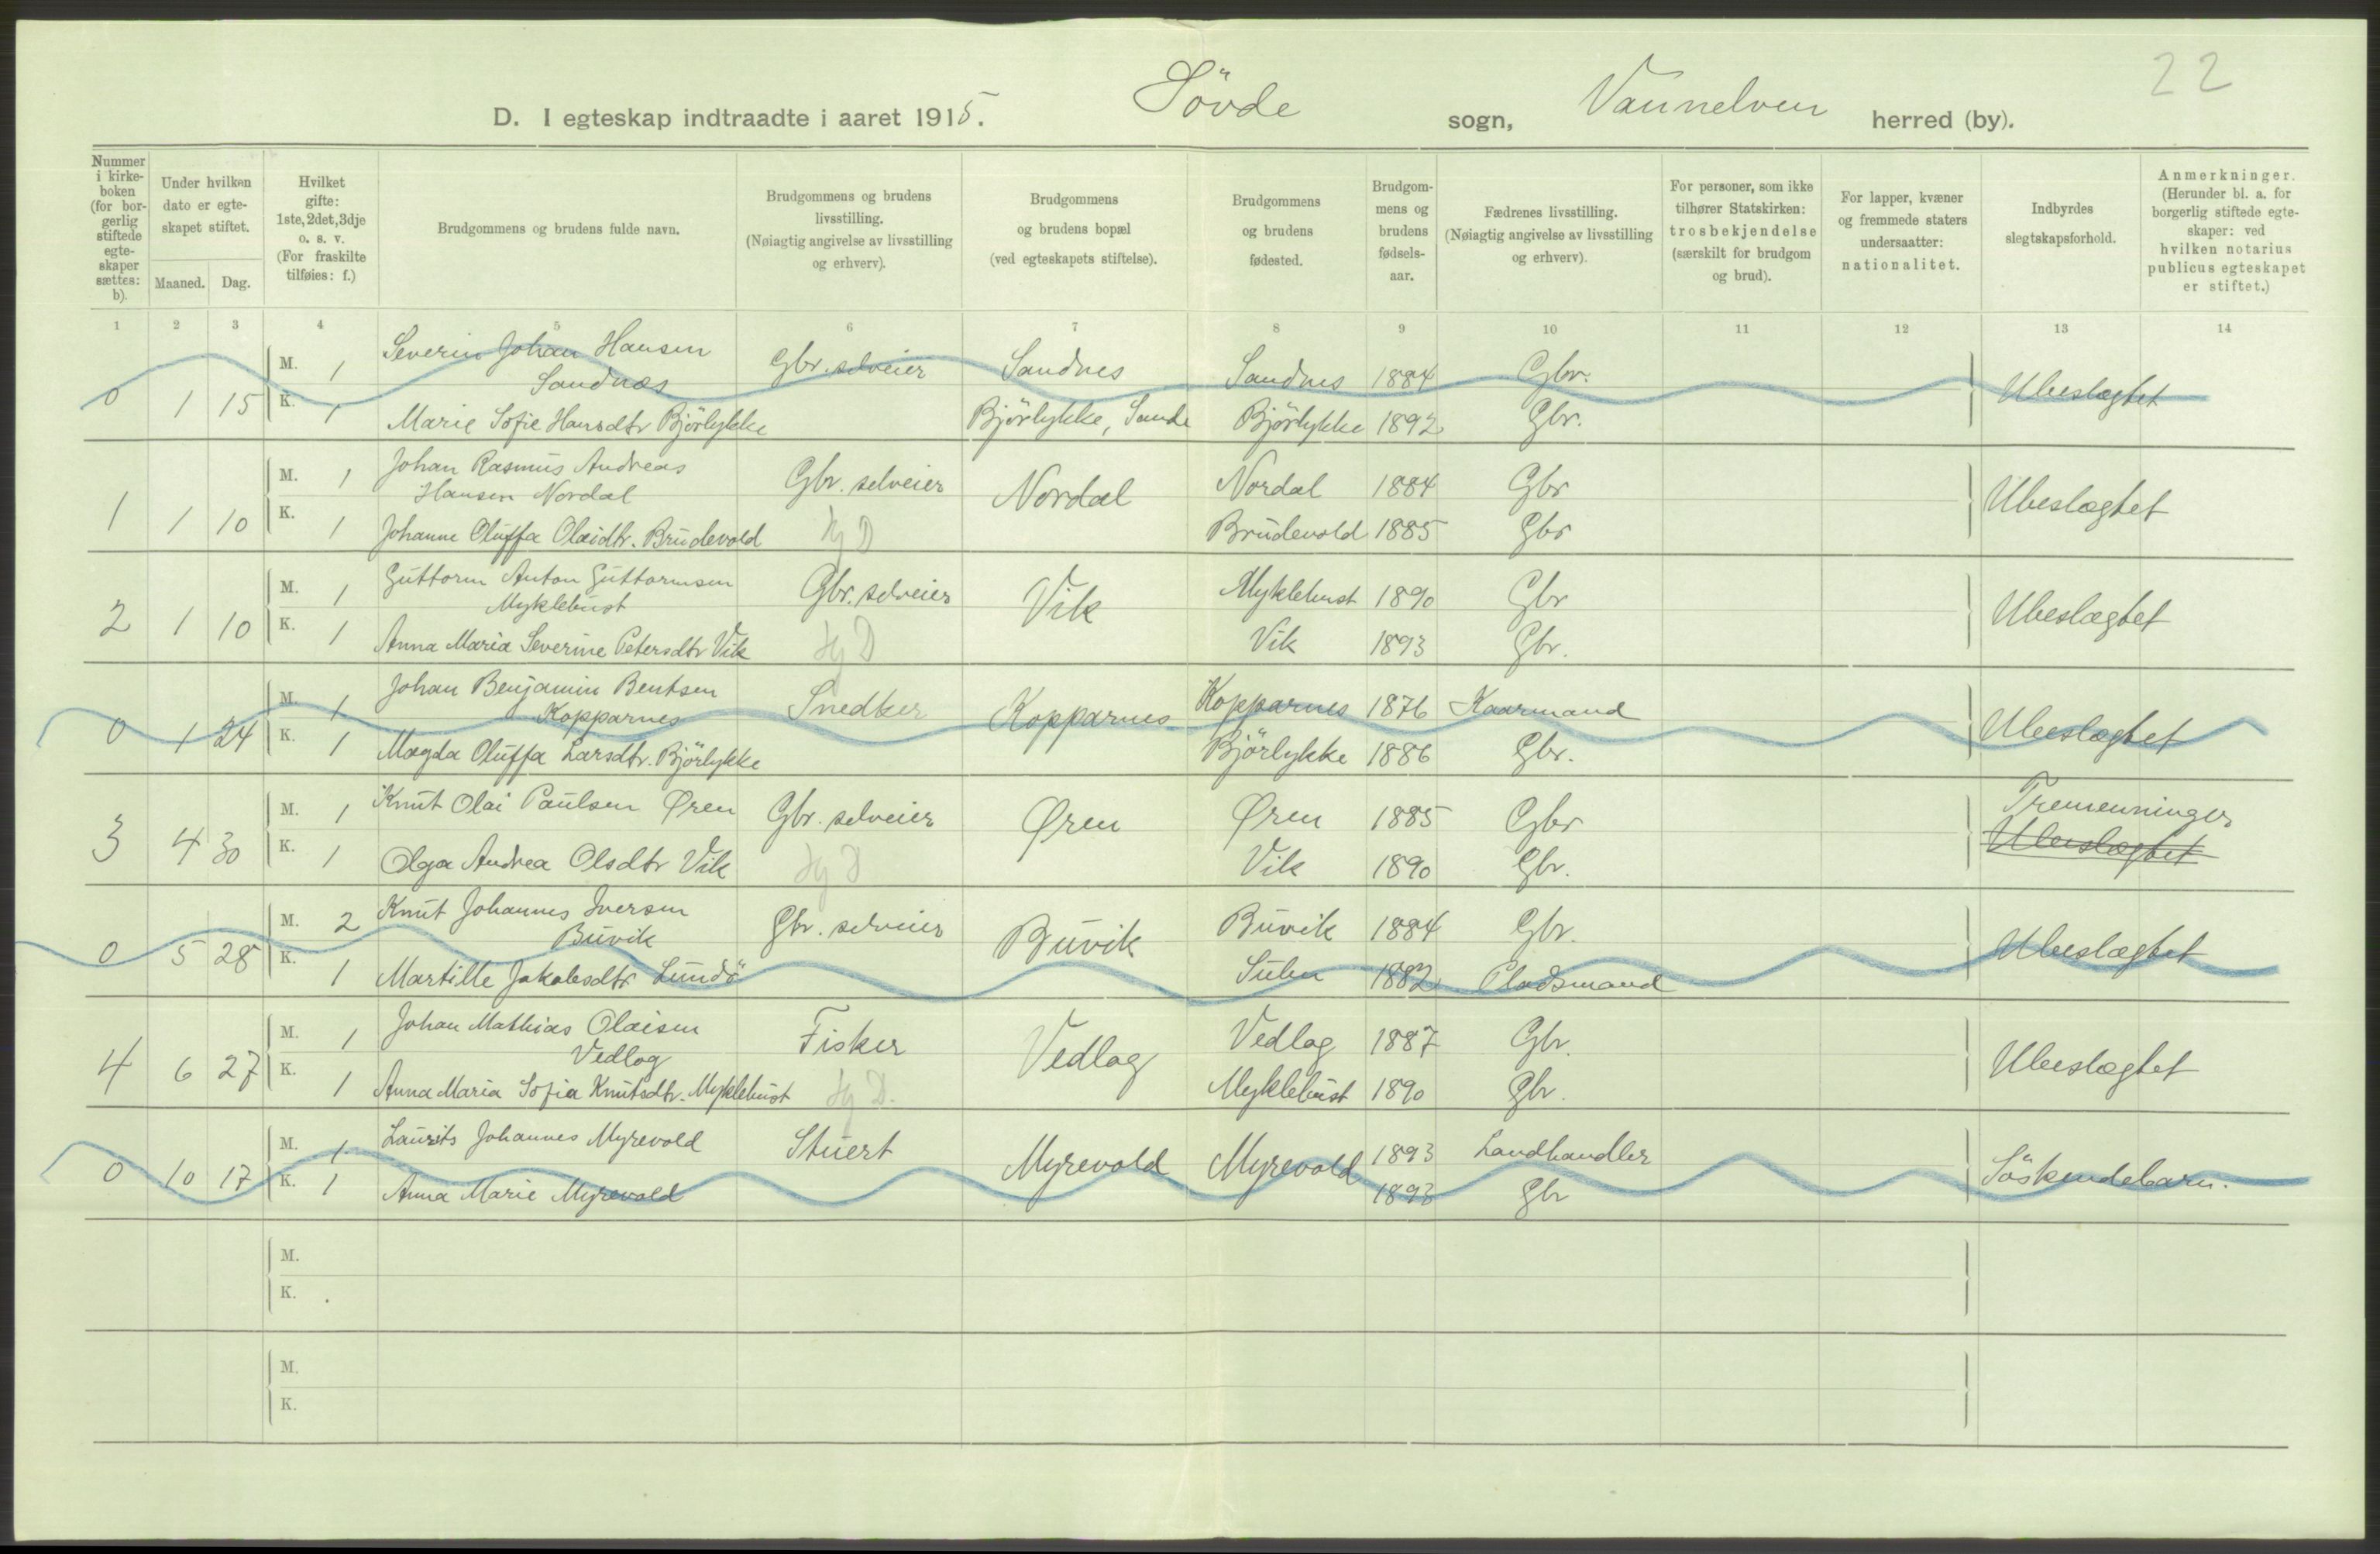 22
D. I egteskap indtraadte i aaret 1915. Sövde sogn, Vannelven herred (by).
Nummer i kirkeboken (for borgerlig stiftede egteskaper sættes: b).
Under hvilken dato er egteskapet stiftet.
Maaned. Dag.
Hvilket gifte: 1ste, 2det, 3dje o. s. v. (For fraskilte tilføies: f.)
Brudgommens og brudens fulde navn.
Brudgommens og brudens livsstilling. (Nøiagtig angivelse av livsstilling og erhverv).
Brudgommens og brudens bopæl (ved egteskapets stiftelse).
Brudgommens og brudens fødested.
Brudgommens og brudens fødselsaar.
Fædrenes livsstilling. (Nøiagtig angivelse av livsstilling og erhverv).
For personer, som ikke tilhører Statskirken: trosbekjendelse (særskilt for brudgom og brud).
For lapper, kvæner og fremmede staters undersaatter: nationalitet.
Indbyrdes slegtskapsforhold.
Anmerkninger. (Herunder bl. a. for borgerlig stiftede egteskaper: ved hvilken notarius publicus egteskapet er stiftet.)
1 2 3 4 5 6 7 8 9 10 11 12 13 14
0 1 15 M. 1 Severin Johan Hansen Sandnæs Gbr. selveier Sandnes Sandnes 1884 Gbr. Ubeslægtet
K. 1 Marie Sofie Hansdtr Bjørlykke Bjørlykke, Sande Bjørlykke 1892 Gbr.
1 1 10 M. 1 Johan Rasmus Andreas Hansen Nordal Gbr. selveier Nordal Nordal 1884 Gbr Ubeslægtet
K. 1 Johanne Oluffa Olaidtr. Brudevold Hj D Brudevold 1885 Gbr
2 1 10 M. 1 Guttorm Anton Guttormsen Myklebust Gbr. selveier Vik Myklebust 1890 Gbr Ubeslægtet
K. 1 Anna Maria Severine Petersdtr Vik Hj D Vik 1893 Gbr.
0 1 24 M. 1 Johan Benjamin Bentsen Kopparnes Snedker Kopparnes Kopparnes 1876 Kaarmand Ubeslægtet
K. 1 Magda Oluffa Larsdtr. Bjørlykke Bjørlykke 1886 Gbr.
3 4 30 M. 1 Knut Olai Paulsen Øren Gbr. selveier Øren Øren 1885 Gbr Tremenninger
K. 1 Olga Andrea Olsdtr Vik Hj D Vik 1890 Gbr. Ubeslægtet
0 5 28 M. 2 Knut Johannes Iversen Buvik Gbr. selveier Buvik Buvik 1884 Gbr. Ubeslægtet
K. 1 Martille Jakobsdtr Lundö Sulen 1882 Pladsmand
4 6 27 M. 1 Johan Mathias Olaisen Vedlog Fisker Vedlog Vedlog 1887 Gbr. Ubeslægtet
K. 1 Anna Maria Sofia Knutsdtr. Myklebust Hj D. Myklebust 1890 Gbr.
0 10 17 M. 1 Laurits Johannes Myrevold Stuert Myrevold Myrevold 1893 Landhandler Söskendebarn.
K. 1 Anna Marie Myrevold 1893 Gbr
M.
K.
M.
K.